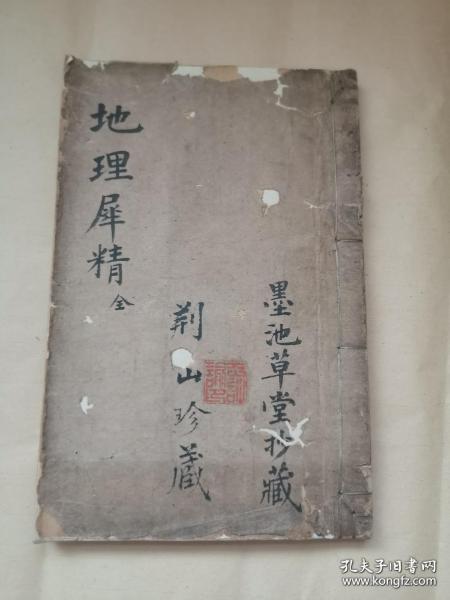 墨池草堂抄藏
荆山珍藏
地理犀精
全
孔夫子旧书网
www.kongfz.com